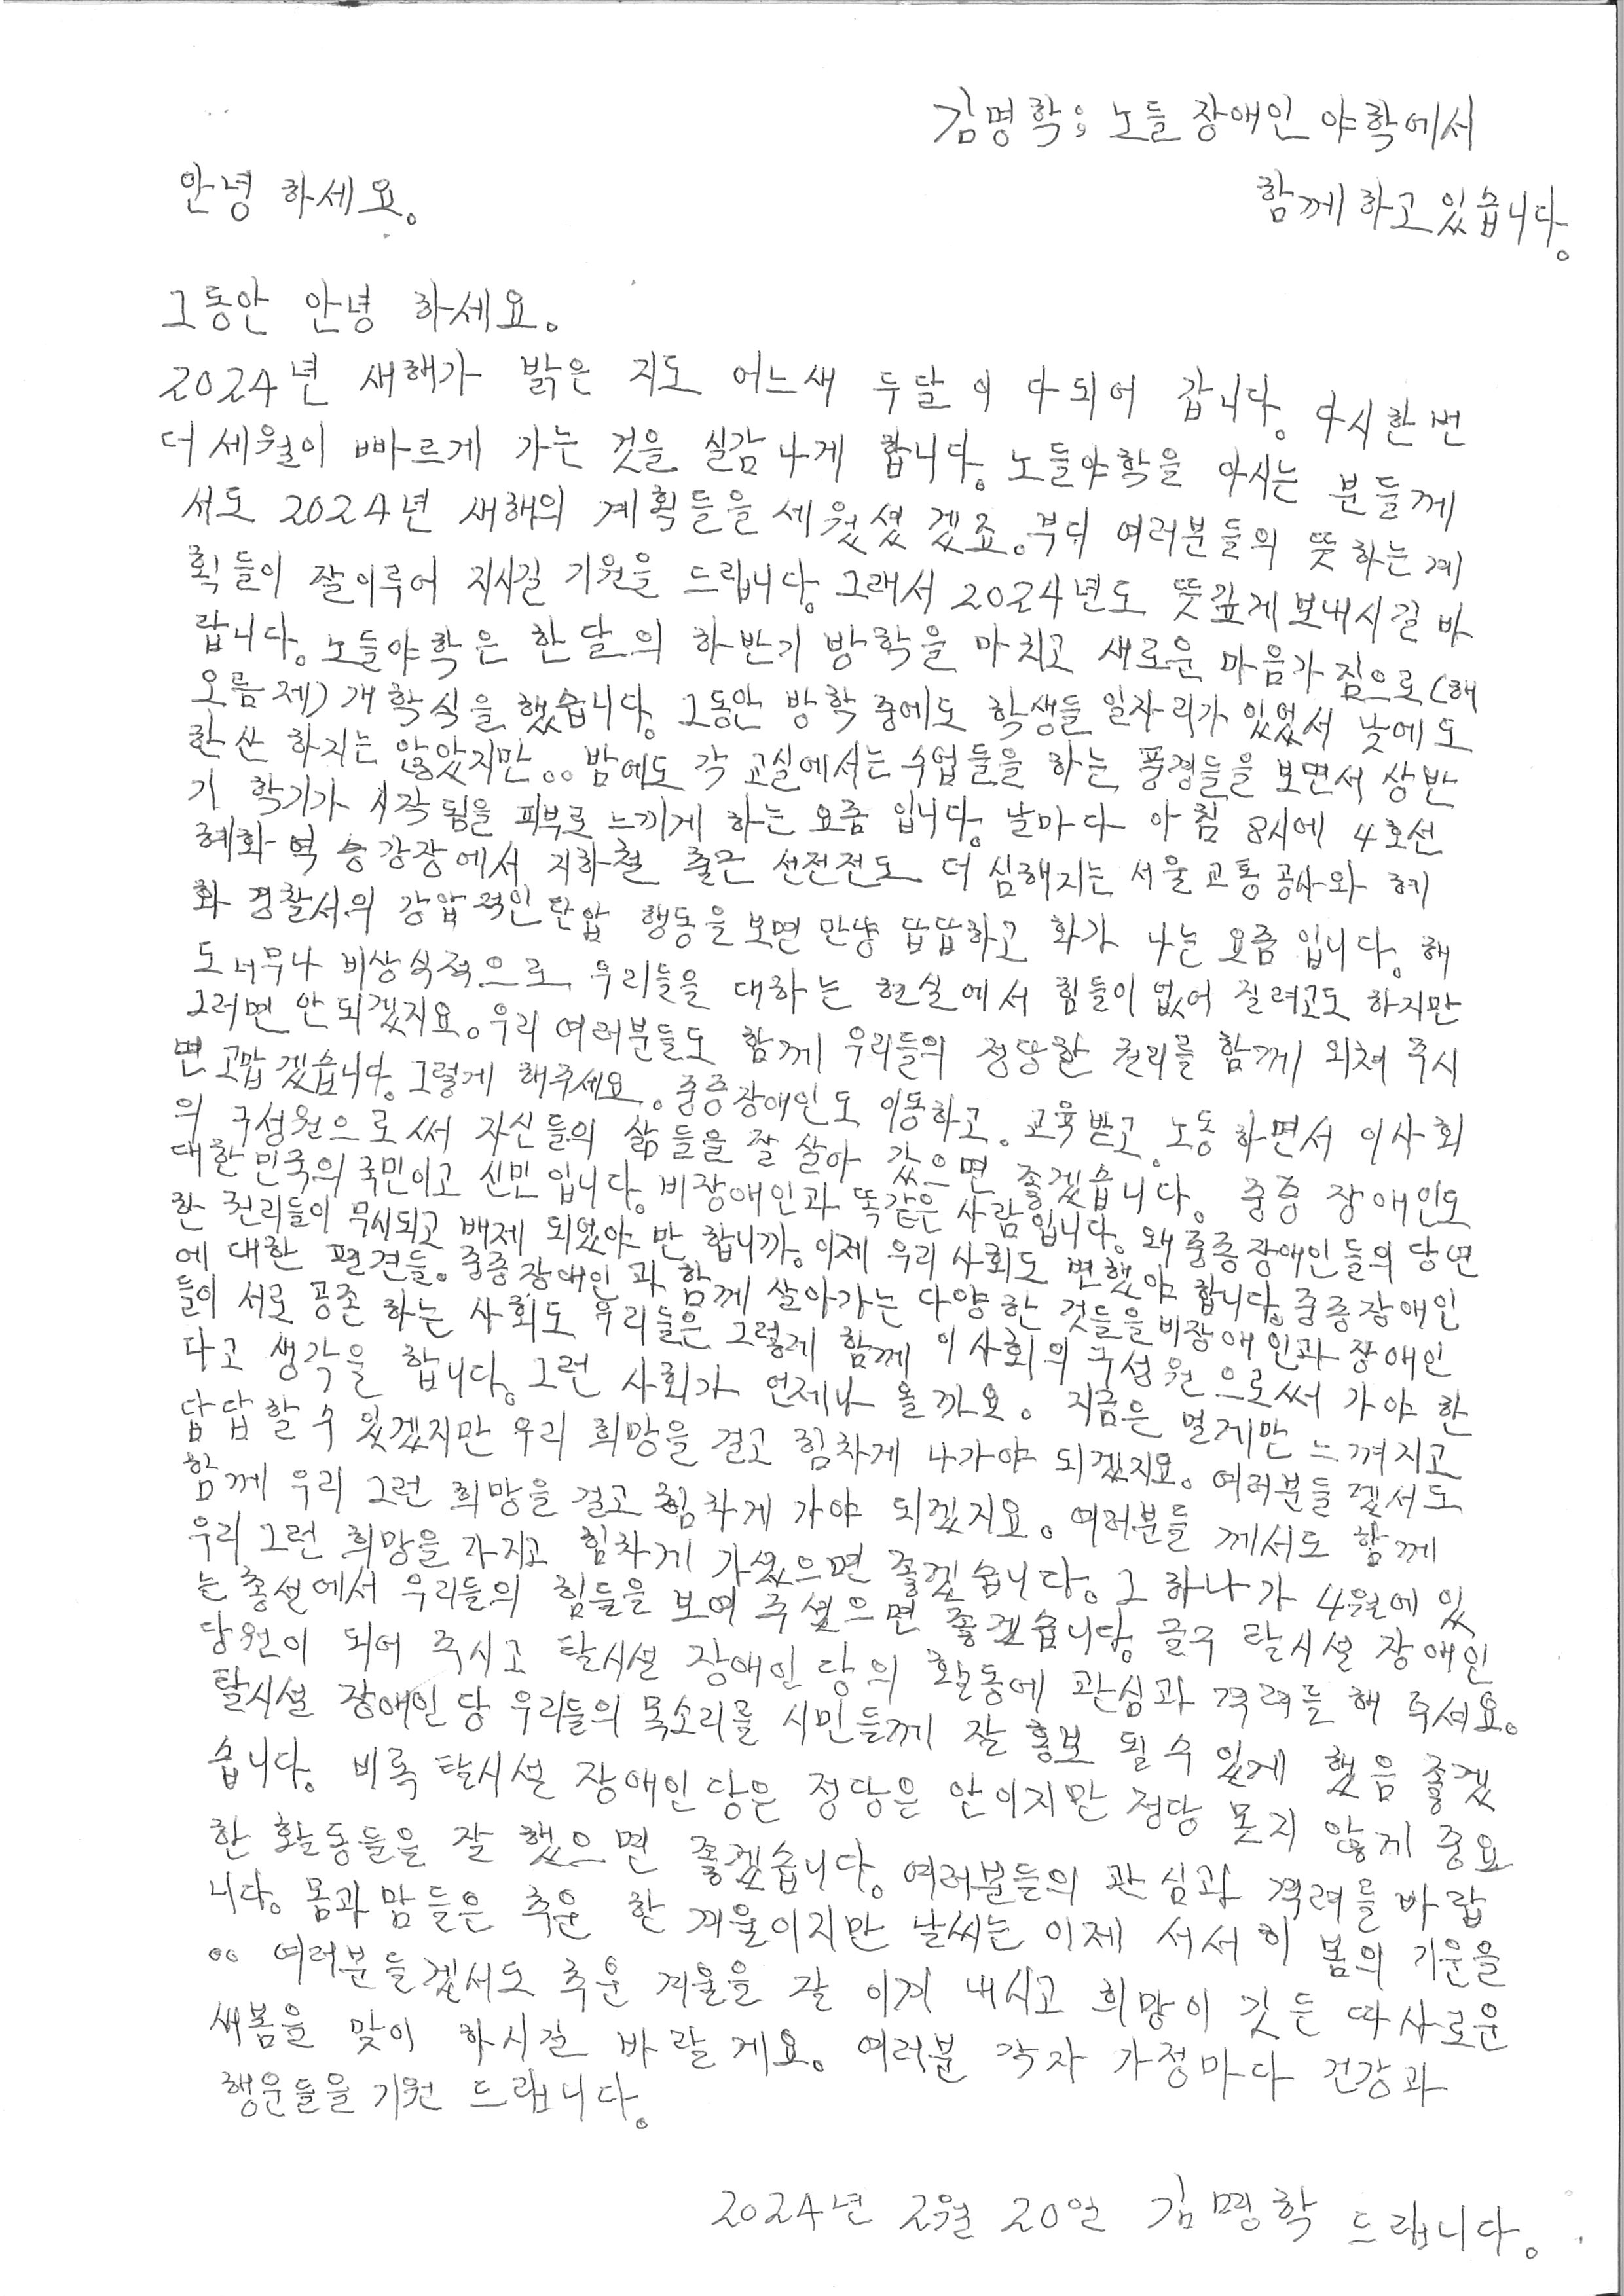 김명학; 노들 장애인 야학에서
함께 하고 있습니다.
안녕 하세요.
그동안 안녕 하세요.
2024년 새해가 밝은 지도 어느새 두달이 다되어 갑니다. 다시한번
더 세월이 빠르게 가는 것을 실감나게 합니다. 노들야학을 아시는 분들께
서도 2024년 새해의 계획들을 세웠셨겠죠. 부디 여러분들의 뜻하는 계
획들이 잘이루어 지시길 기원을 드립니다. 그래서 2024년도 뜻깊게 보내시길 바
랍니다. 노들야학은 한달의 하반기 방학을 마치고 새로운 마음가짐으로 (해
오름제) 개학식을 했습니다. 그동안 방학 중에도 학생들 일자리가 있었서 낮에도
한산 하지는 않았지만.. 밤에도 각 교실에서는 수업들을 하는 풍경들을 보면서 상반
기 학기가 시작됨을 피부로 느끼게 하는 요즘 입니다. 날마다 아침 8시에 4호선
혜화역 승강장에서 지하철 출근 선전전도 더 심해지는 서울교통공사와 혜
화 경찰서의 강압적인 탄압 행동을 보면 만냥 답답하고 화가 나는 요즘 입니다. 해
도너무나 비상식적으로 우리들을 대하는 현실에서 힘들이 없어 질려고도 하지만
그러면 안 되겠지요. 우리 여러분들도 함께 우리들의 정당한 권리를 함께 외쳐 주시
면 고맙겠습니다. 그렇게 해주세요. 중증장애인도 이동하고. 교육받고. 노동하면서 이사회
의 구성원으로써 자신들의 삶들을 잘 살아 갔으면 좋겠습니다. 중증 장애인도
대한민국의 국민이고 신민 입니다. 비장애인과 똑같은 사람입니다. 왜 중증장애인들의 당연
한 권리들이 무시되고 배제 되었야만 합니까. 이제 우리 사회도 변했야 합니다. 중증장애인
에 대한 편견들. 중증장애인과 함께 살아가는 다양한 것들을 비장애인과 장애인
들이 서로 공존 하는 사회도 우리들은 그렇게 함께 이 사회의 구성원으로써 가야 한
다고 생각을 합니다. 그런 사회가 언제나 올까요. 지금은 멀게만 느껴지고
답답할 수 있겠지만 우리 희망을 걸고 힘차게 나가야 되겠지요. 여러분들 겠서도
함께 우리 그런 희망을 걸고 힘차게 가야 되겠지요. 여러분들 께서도 함께
우리 그런 희망을 가지고 힘차게 가셨으면 좋겠습니다. 그 하나가 4월에 있
는 총선에서 우리들의 힘들을 보여 주셨으면 좋겠습니다. 글구 탈시설 장애인
당원이 되어 주시고 탈시설 장애인당의 활동에 관심과 격려를 해 주셔요.
탈시설 장애인당 우리들의 목소리를 시민들께 잘 홍보 될 수 있게 했음 좋겠
습니다. 비록 탈시설 장애인당은 정당은 안이지만 정당 못지 않게 중요
한 활동들을 잘 했으면 좋겠습니다. 여러분들의 관심과 격려를 바랍
니다. 몸과 맘들은 추운 한 겨울이지만 날씨는 이제 서서히 봄의 기운을
.. 여러분들겠서도 추운 겨울을 잘 이겨 내시고 희망이 깃든 따사로운
새봄을 맞이 하시길 바랄게요. 여러분 각자 가정마다 건강과
행운들을 기원 드립니다.
2024년 2월 20일 김명학 드립니다.